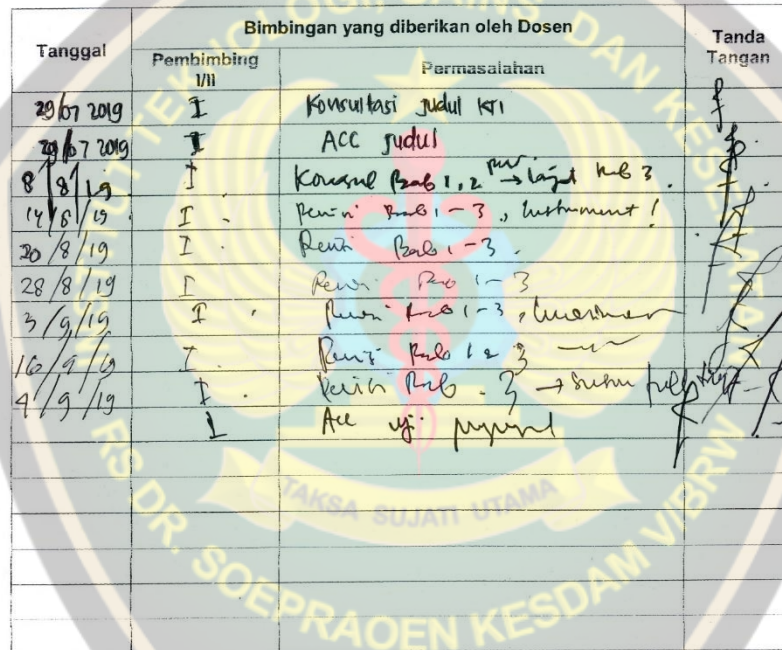 Bimbingan yang diberikan oleh Dosen
Tanggal Pembimbing I/II Permasalahan Tanda Tangan
29/07 2019 I Konsultasi judul KTI
29/07 2019 I ACC judul
8/8/19 I Konsul Bab 1, 2 → lanjut bab 3
14/8/19 I Revisi Bab 1-3, Instrument!
20/8/19 I Revisi Bab 1-3
28/8/19 I Revisi Bab 1-3
3/9/19 I Revisi Bab 1-3,
16/9/19 I Revisi Bab 1 2 3
4/9/19 I Revisi Bab 3 →
I Acc uji proposal
TEKNOLOGI, SAINS DAN KESEHATAN
TAKSA SUJATI UTAMA
RS DR. SOEPRAOEN KESDAM VIBRW